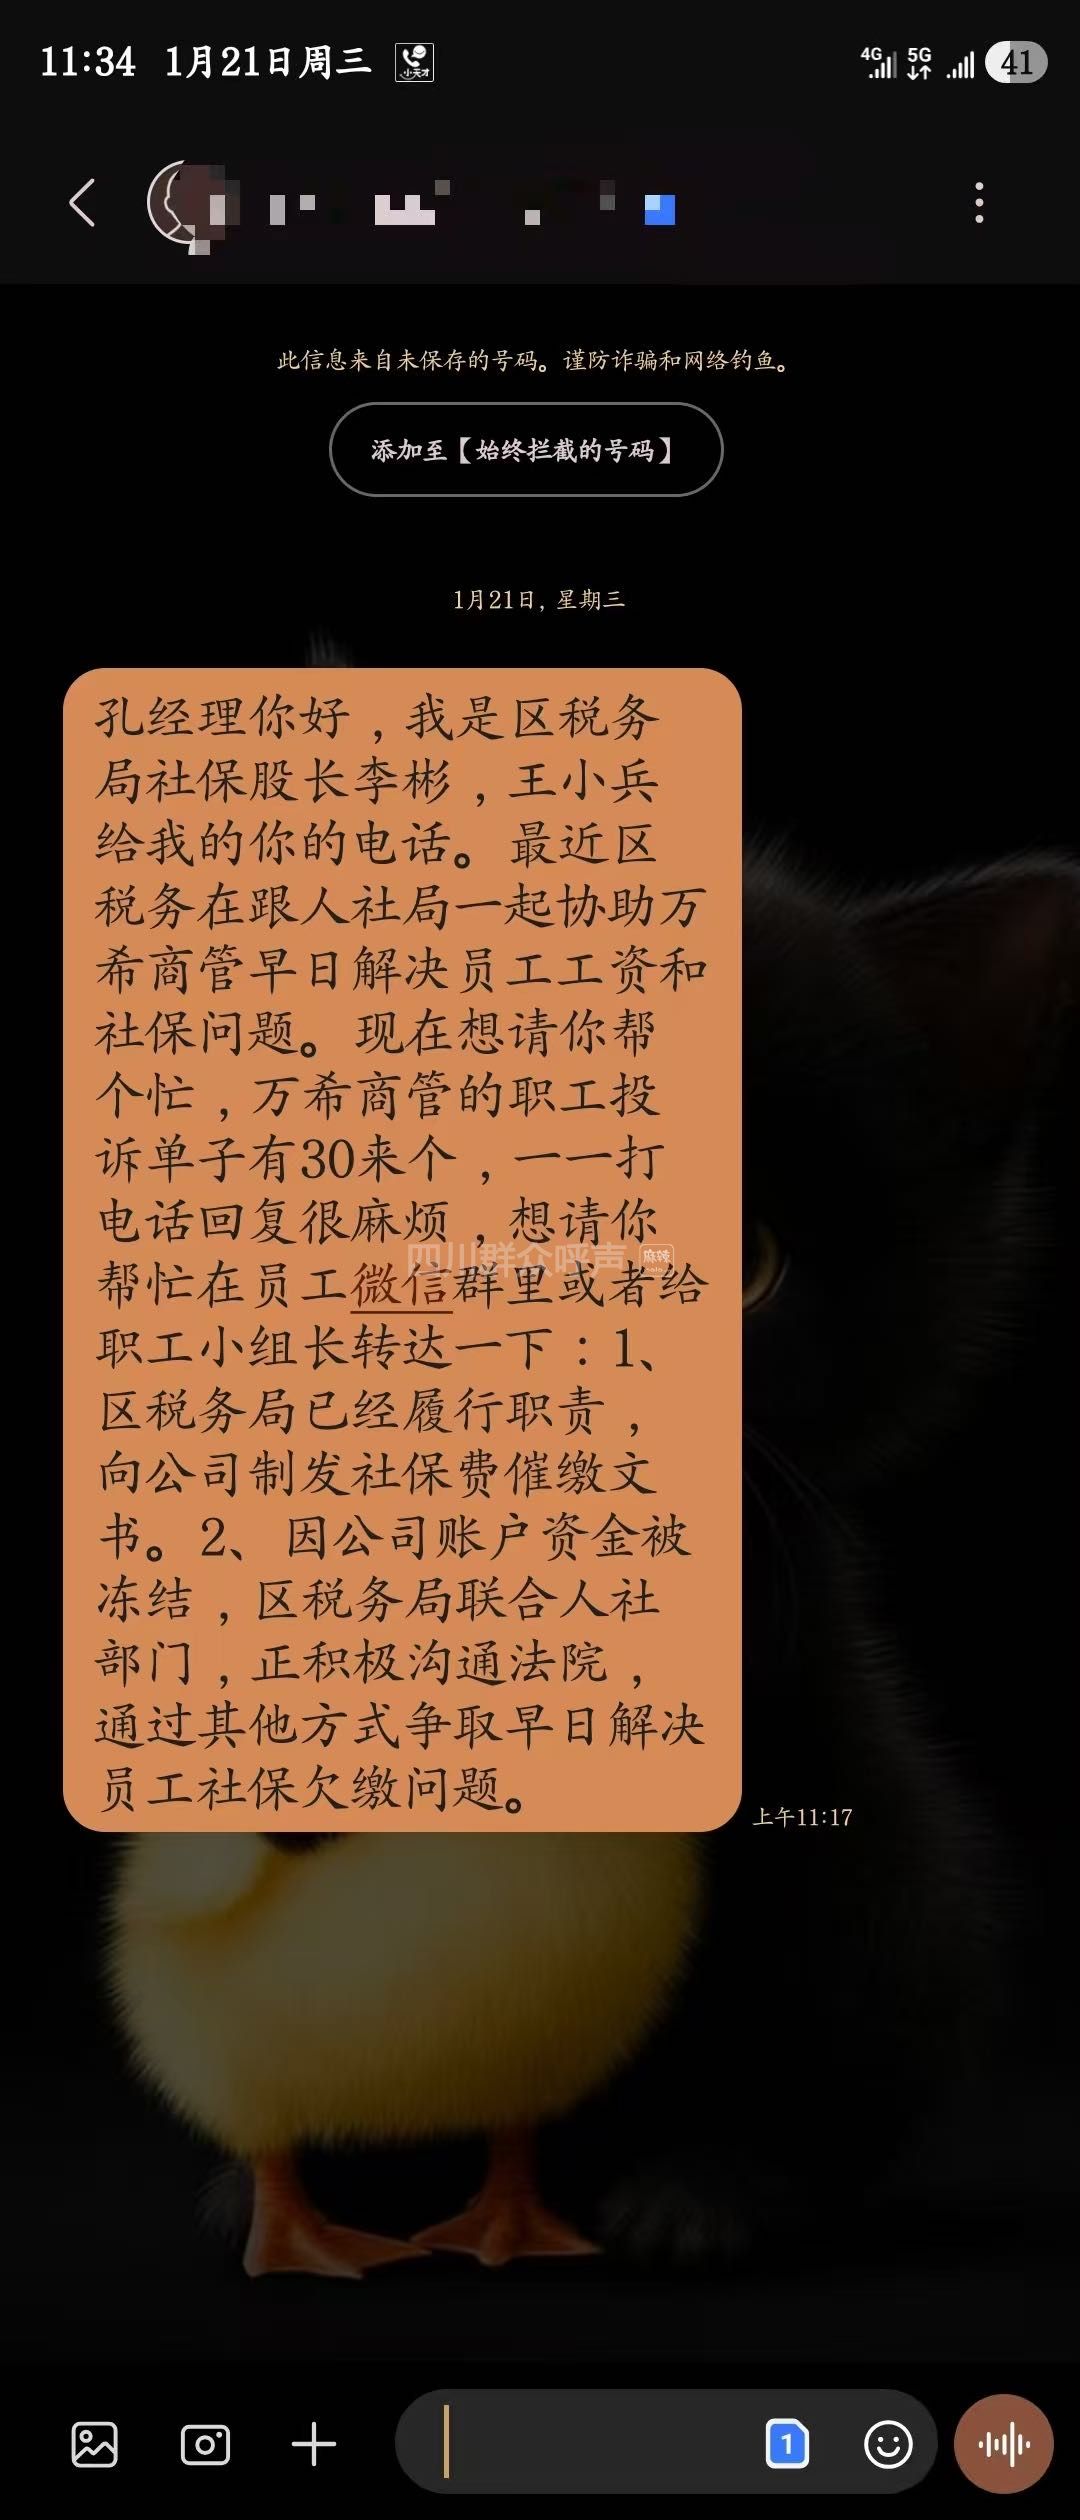 11:34 1月21日周三 小天才 4G 5G 41
此信息来自未保存的号码。谨防诈骗和网络钓鱼。
添加至【始终拦截的号码】
1月21日, 星期三
孔经理你好，我是区税务
局社保股长李彬，王小兵
给我的你的电话。最近区
税务在跟人社局一起协助万
希商管早日解决员工工资和
社保问题。现在想请你帮
个忙，万希商管的职工投
诉单子有30来个，一一打
电话回复很麻烦，想请你
四川群众呼声 麻辣
帮忙在员工微信群里或者给
职工小组长转达一下：1、
区税务局已经履行职责，
向公司制发社保费催缴文
书。2、因公司账户资金被
冻结，区税务局联合人社
部门，正积极沟通法院，
通过其他方式争取早日解决
员工社保欠缴问题。
上午11:17
1